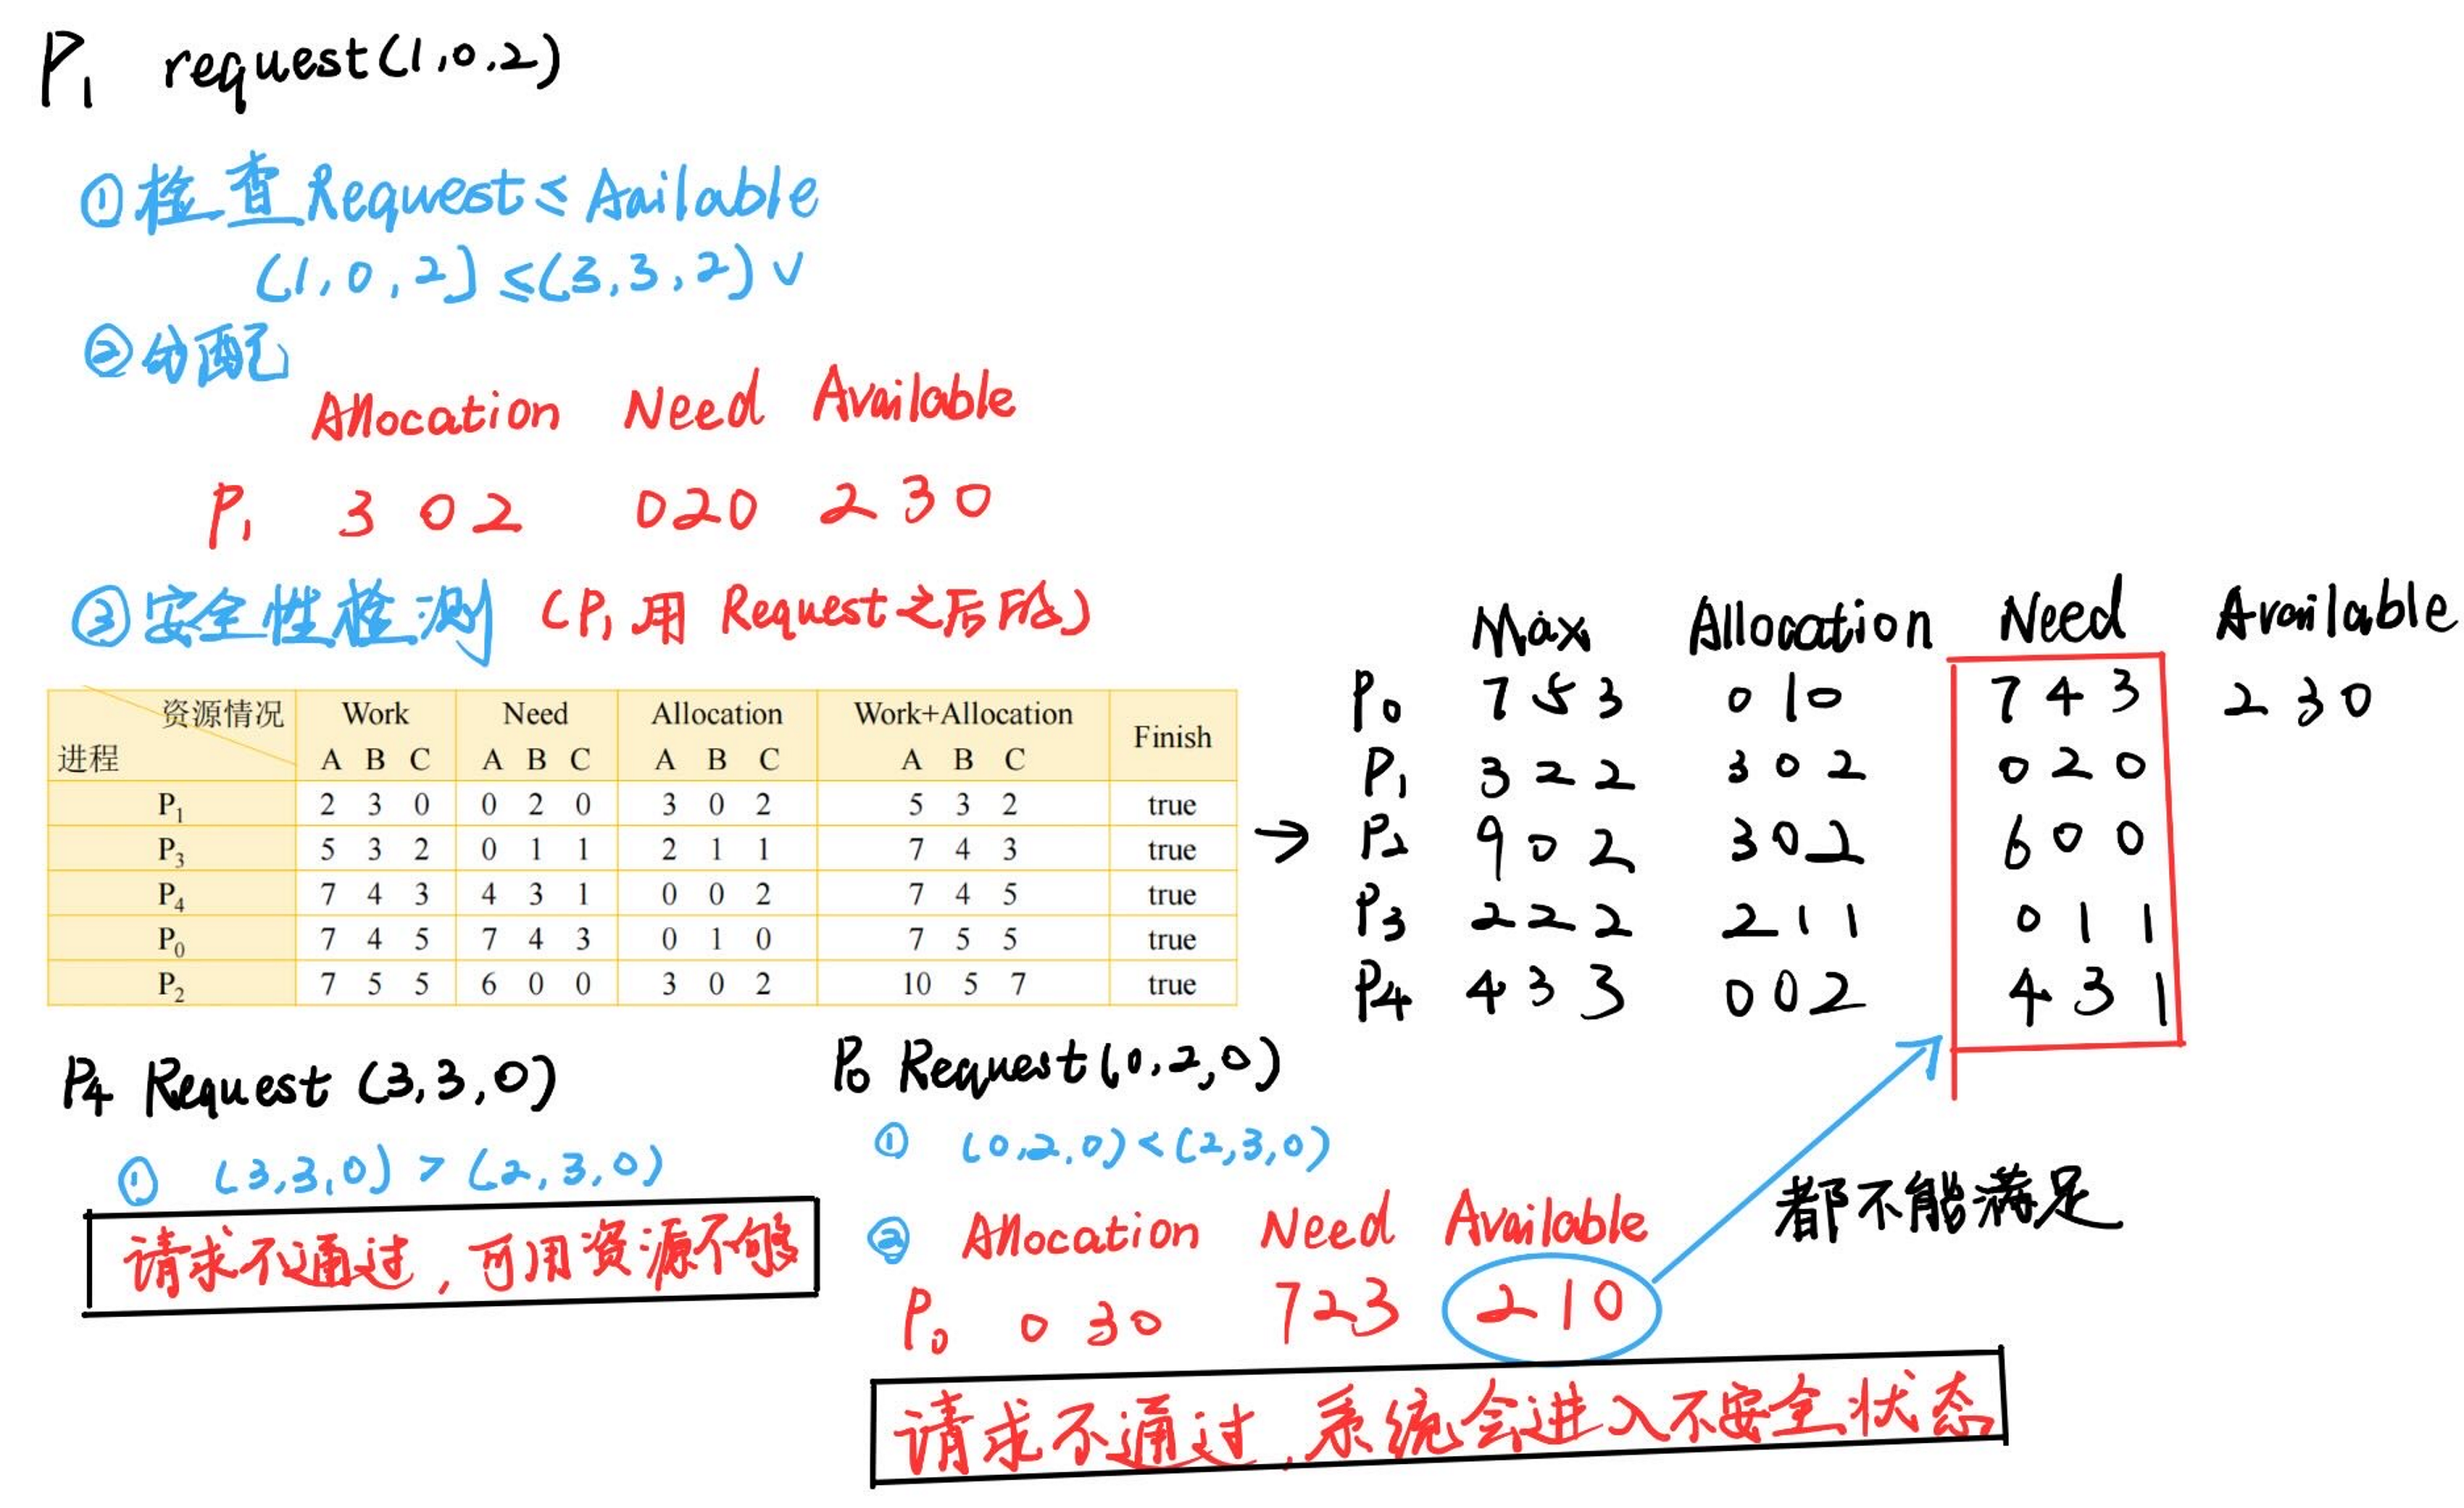 P₁ request(1,0,2)
①检查Request≤Aailable
(1,0,2]≤(3,3,2)√
②分配
Allocation Need Available
P₁ 3 0 2 0 2 0 2 3 0
③安全性检测 (P₁用Request之后的)
资源情况 Work Need Allocation Work+Allocation Finish
进程 A B C A B C A B C A B C
P₁ 2 3 0 0 2 0 3 0 2 5 3 2 true
P₃ 5 3 2 0 1 1 2 1 1 7 4 3 true
P₄ 7 4 3 4 3 1 0 0 2 7 4 5 true
P₀ 7 4 5 7 4 3 0 1 0 7 5 5 true
P₂ 7 5 5 6 0 0 3 0 2 10 5 7 true
→
Max Allocation Need Available
P₀ 7 5 3 0 1 0 7 4 3 2 3 0
P₁ 3 2 2 3 0 2 0 2 0
P₂ 9 0 2 3 0 2 6 0 0
P₃ 2 2 2 2 1 1 0 1 1
P4 4 3 3 0 0 2 4 3 1
P4 Request (3,3,0)
① (3,3,0) > (2,3,0)
请求不通过,可用资源不够
P₀ Request(0,2,0)
① (0,2,0)<(2,3,0)
② Allocation Need Available
P₀ 0 3 0 7 2 3 2 1 0
都不能满足
请求不通过,系统会进入不安全状态